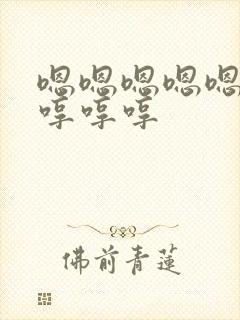 嗯嗯嗯嗯嗯
哼哼哼
佛前青蓮